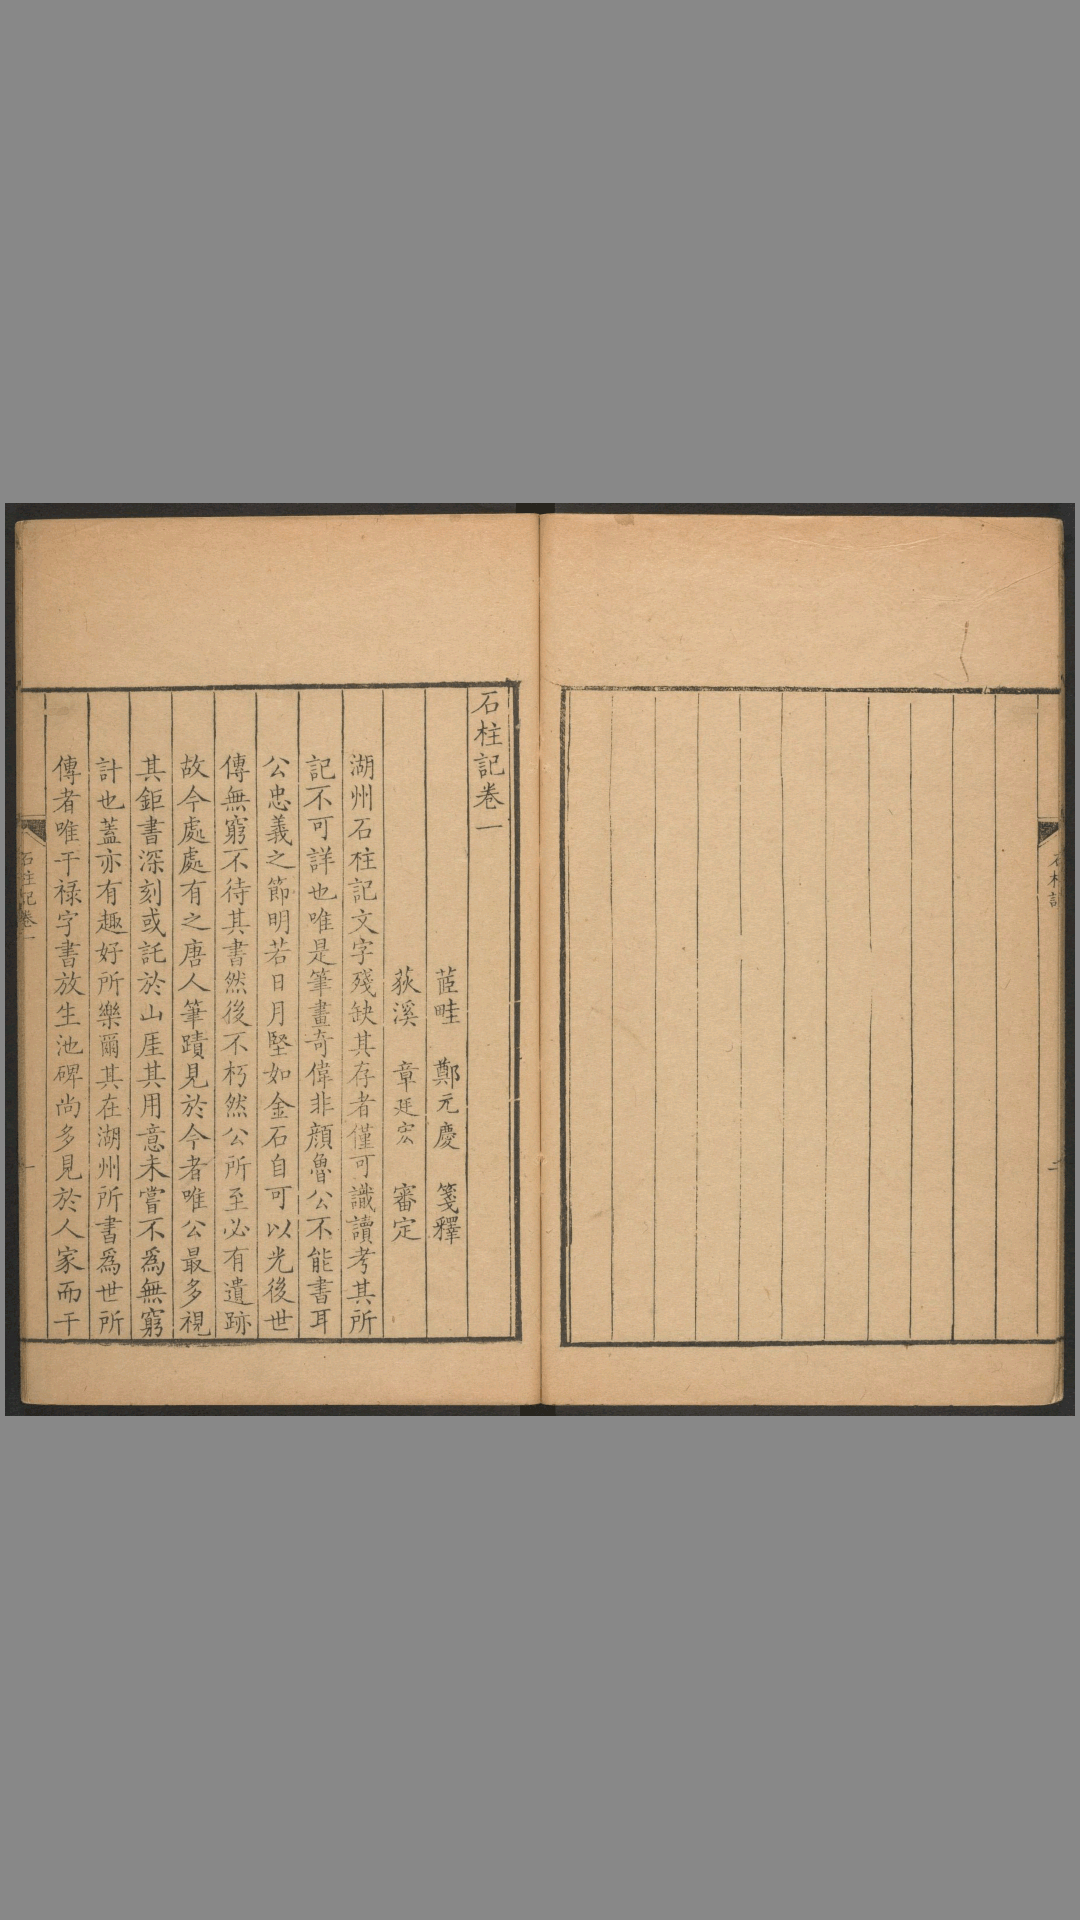 石柱記
二
石柱記卷一
茝畦 鄭元慶 箋釋
荻溪 章廷宏 審定
湖州石柱記文字殘缺其存者僅可識讀考其所
記不可詳也唯是筆畫奇偉非顔魯公不能書耳
公忠義之節明若日月堅如金石自可以光後世
傳無窮不待其書然後不朽然公所至必有遺跡
故今處處有之唐人筆蹟見於今者唯公最多視
其鉅書深刻或託於山厓其用意未嘗不爲無窮
計也蓋亦有趣好所樂爾其在湖州所書爲世所
傳者唯干禄字書放生池碑尚多見於人家而干
石柱記卷一
一